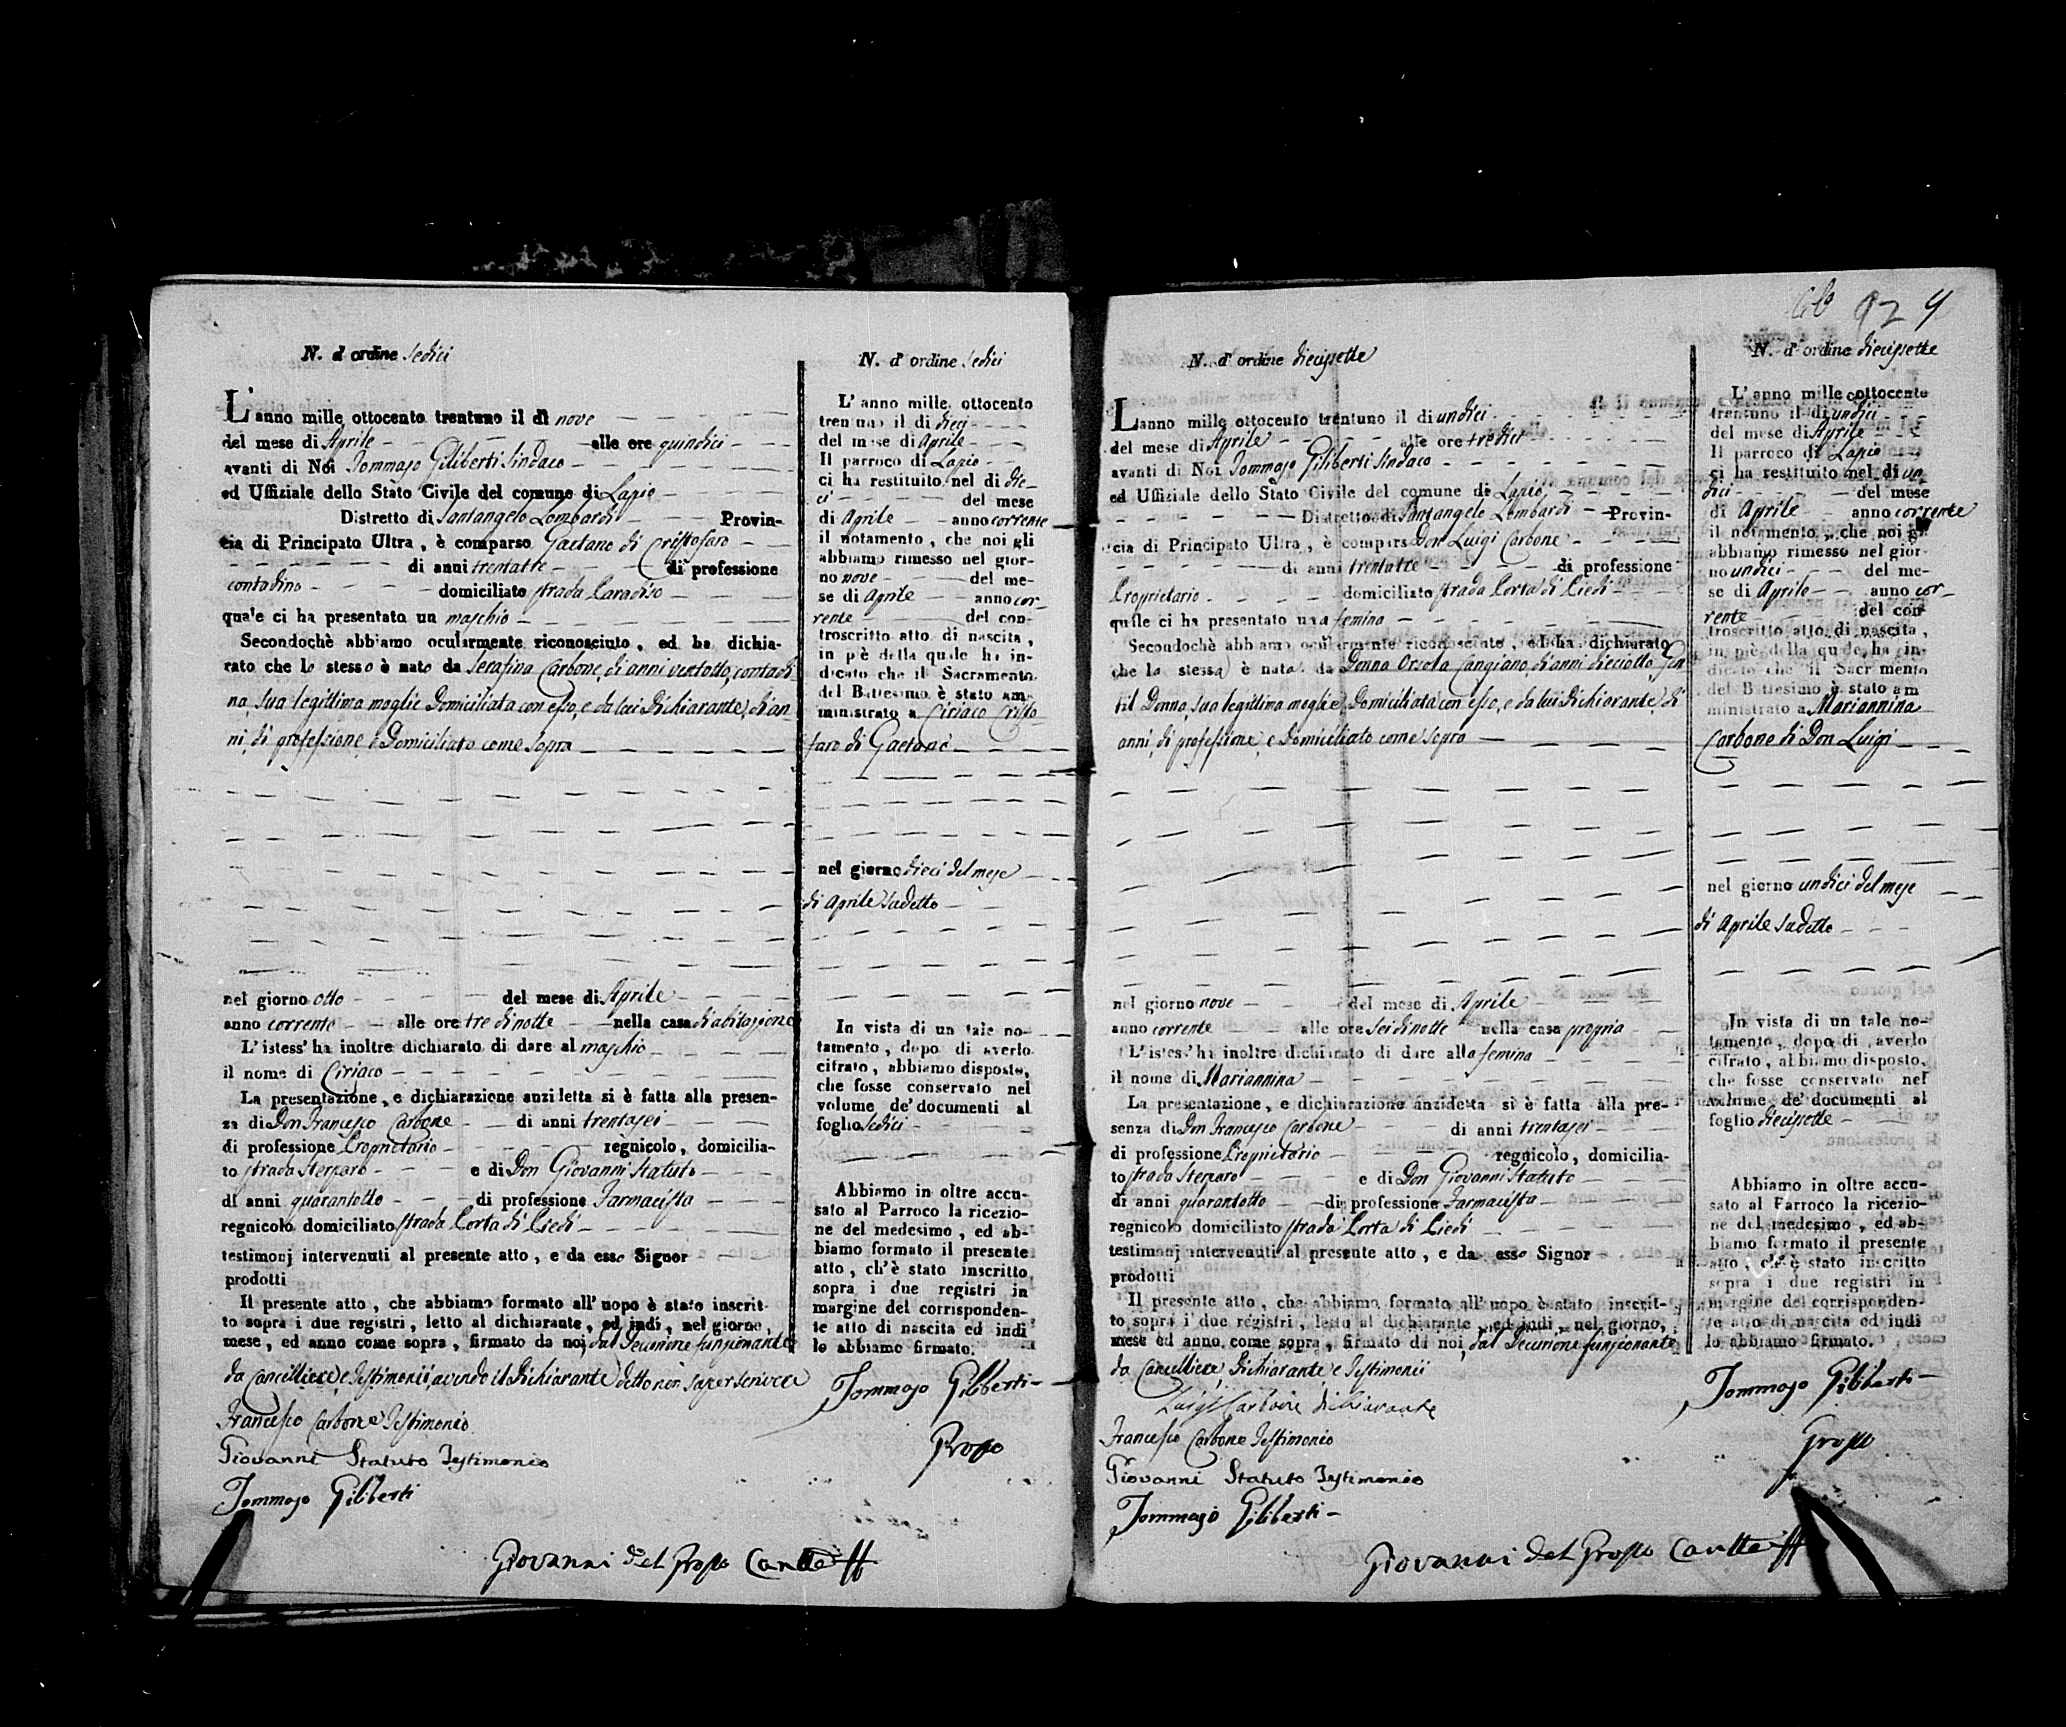 N. d'ordine sedici
L'anno mille ottocento trentuno il dì nove
del mese di Aprile alle ore quindici
avanti di Noi Tommaso Giliberti Sindaco
ed Uffiziale dello Stato Civile del comune di Lapio
Distretto di Santangelo Lombardi Provin-
cia di Principato Ultra, è comparso Gaetano di Cristofaro
di anni trentatre di professione
contadino domiciliato strada Paradiso
quale ci ha presentato un maschio
Secondochè abbiamo ocularmente riconosciuto, ed ha dichia-
rato che lo stesso è nato da Serafina Carbone, di anni ventotto, contadi
na, sua legittima moglie Domiciliata con esso, e da lui Dichiarante, di an-
ni, di professione, e Domiciliato come sopra
nel giorno otto del mese di Aprile
anno corrente alle ore tre di notte nella casa di abitazione
L'istess' ha inoltre dichiarato di dare al maschio
il nome di Ciriaco
La presentazione, e dichiarazione anzidetta si è fatta alla presen-
za di Don Francesco Carbone di anni trentasei
di professione Proprietario regnicolo, domicilia-
to strada Sterparo e di Don Giovanni Statuto
di anni quarantotto di professione Farmacista
regnicolo domiciliato strada Porta di Piedi
testimonj intervenuti al presente atto, e da esso Signor
prodotti
Il presente atto, che abbiamo formato all'uopo è stato inscrit-
to sopra i due registri, letto al dichiarante, ed indi, nel giorno,
mese, ed anno come sopra, firmato da noi, dal Decurione funzionante
da Cancelliere, e Testimonii, avendo il Dichiarante detto non saper scrivere
Francesco Carbone Testimonio
Giovanni Statuto Testimonio
Tommaso Giliberti
Giovanni del Grosso Canc
N. d'ordine sedici
L'anno mille ottocento
trentuno il di dieci
del mese di Aprile
Il parroco di Lapio
ci ha restituito nel di die-
ci del mese
di Aprile anno corrente
il notamento, che noi gli
abbiamo rimesso nel gior-
no nove del me-
se di Aprile anno cor-
rente del con-
troscritto atto di nascita,
in piè della quale ha in-
dicato che il Sacramento
del Battesimo è stato am-
ministrato a Ciriaco Cristo-
faro di Gaetano
nel giorno dieci del mese
di Aprile sudetto
In vista di un tale no-
tamento, dopo di averlo
cifrato, abbiamo disposto,
che fosse conservato nel
volume de' documenti al
foglio sedici
Abbiamo in oltre accu-
sato al Parroco la ricezio-
ne del medesimo, ed ab-
biamo formato il presente
atto, ch'è stato inscritto
sopra i due registri in
margine del corrisponden-
te atto di nascita ed indi
lo abbiamo firmato.
Tommaso Giliberti
Grosso
N. d'ordine diecissette
L'anno mille ottocento trentuno il di undici
del mese di Aprile alle ore tredici
avanti di Noi Tommaso Giliberti Sindaco
ed Uffiziale dello Stato Civile del comune di Lapio
Distretto di Santangelo Lombardi Provin-
cia di Principato Ultra, è comparso Don Luigi Carbone
di anni trentatre di professione
Proprietario domiciliato strada Porta di Piedi
quale ci ha presentato una femina
Secondochè abbiamo ocularmente riconosciuto, ed ha dichiarato
che la stessa è nata da Donna Orsola Cangiano, di anni dieciotto, Gen
til Donna, sua legittima moglie, Domiciliata con esso, e da lui Dichiarante, di
anni, di professione, e Domiciliato come sopra
nel giorno nove del mese di Aprile
anno corrente alle ore sei di notte nella casa propria
L'istess' ha inoltre dichiarato di dare alla femina
il nome di Mariannina
La presentazione, e dichiarazione anzidetta si è fatta alla pre-
senza di Don Francesco Carbone di anni trentasei
di professione Proprietario regnicolo, domicilia-
to strada Sterparo e di Don Giovanni Statuto
di anni quarantotto di professione Farmacista
regnicolo domiciliato strada Porta di Piedi
testimonj intervenuti al presente atto, e da esso Signor
prodotti
Il presente atto, che abbiamo formato all'uopo è stato inscrit-
to sopra i due registri, letto al dichiarante, ed indi, nel giorno,
mese ed anno come sopra, firmato da noi, dal Decurione funzionante
da Cancelliere Dichiarante, e Testimonii
Luigi Carbone dichiarante
Francesco Carbone Testimonio
Giovanni Statuto Testimonio
Tommaso Giliberti
Giovanni del Grosso Canc
N. d'ordine diecissette
L'anno mille ottocento
trentuno il di undici
del mese di Aprile
Il parroco di Lapio
ci ha restituito nel di un-
dici del mese
di Aprile anno corrente
il notamento, che noi gli
abbiamo rimesso nel gior-
no undici del me-
se di Aprile anno cor-
rente del con-
troscritto atto di nascita,
in piè della quale ha in-
dicato che il Sacramento
del Battesimo è stato am
ministrato a Mariannina
Carbone di Don Luigi
nel giorno undici del mese
di Aprile sudetto
In vista di un tale no-
tamento, dopo di averlo
cifrato, abbiamo disposto,
che fosse conservato nel
volume de' documenti al
foglio diecissette
Abbiamo in oltre accu-
sato al Parroco la ricezio-
ne del medesimo, ed ab-
biamo formato il presente
atto, ch'è stato inscritto
sopra i due registri in
margine del corrisponden-
te atto di nascita ed indi
lo abbiamo firmato.
Tommaso Giliberti
Grosso